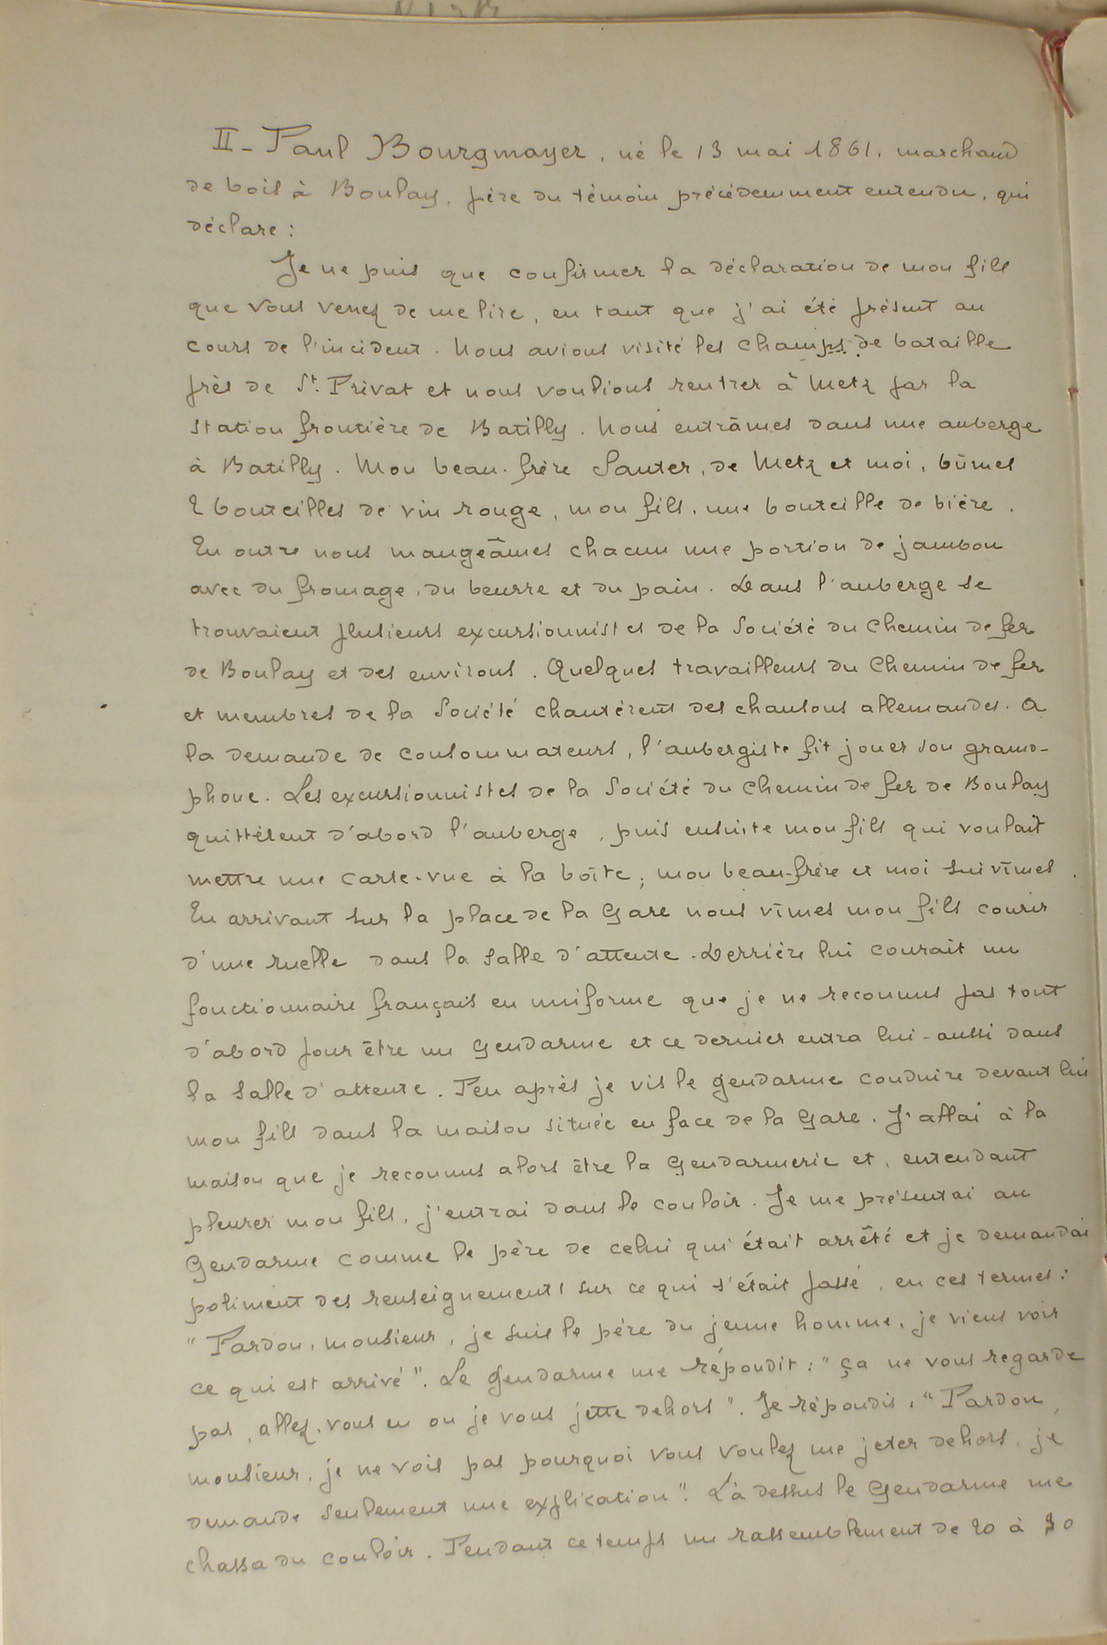 II - Paul Bourgmayer, né le 13 mai 1861, marchand
de bois à Boulay, père du témoin précédemment entendu, qui
déclare :
Je ne puis que confirmer la déclaration de mon fils
que vous venez de me lire, en tant que j'ai été présent au
cours de l'incident. Nous avions visité les champs de bataille
près de St. Privat et nous voulions rentrer à Metz par la
station frontière de Batilly. Nous entrâmes dans une auberge
à Batilly. Mon beau-frère Sauter, de Metz et moi, bûmes
2 bouteilles de vin rouge, mon fils, une bouteille de bière.
En outre nous mangeâmes chacun une portion de jambon
avec du fromage, du beurre et du pain. Dans l'auberge se
trouvaient plusieurs excursionnistes de la Société du Chemin de fer
de Boulay et des environs. Quelques travailleurs du Chemin de fer
et membres de la Société chantèrent des chansons allemandes. A
la demande de consommateurs, l'aubergiste fit jouer son gramo-
phone. Les excursionnistes de la Société du Chemin de fer de Boulay
quittèrent d'abord l'auberge, puis ensuite mon fils qui voulait
mettre une carte-vue à la boîte ; mon beau-frère et moi suivîmes.
En arrivant sur la place de la Gare nous vîmes mon fils courir
d'une ruelle dans la salle d'attente. Derrière lui courait un
fonctionnaire français en uniforme que je ne reconnus pas tout
d'abord pour être un gendarme et ce dernier entra lui-aussi dans
la salle d'attente. Peu après je vis le gendarme conduire devant lui
mon fils dans la maison située en face de la Gare. J'allai à la
maison que je reconnus alors être la Gendarmerie et, entendant
pleurer mon fils, j'entrai dans le couloir. Je me présentai au
Gendarme comme le père de celui qui était arrêté et je demandai
poliment des renseignements sur ce qui s'était passé, en ces termes :
"Pardon, monsieur, je suis le père du jeune homme, je viens voir
ce qui est arrivé". Le Gendarme me répondit : "ça ne vous regarde
pas, allez-vous en ou je vous jette dehors". Je répondis : "Pardon,
monsieur, je ne vois pas pourquoi vous voulez me jeter dehors, je
demande seulement une explication". Là dessus le Gendarme me
chassa du couloir. Pendant ce temps un rassemblement de 20 à 30